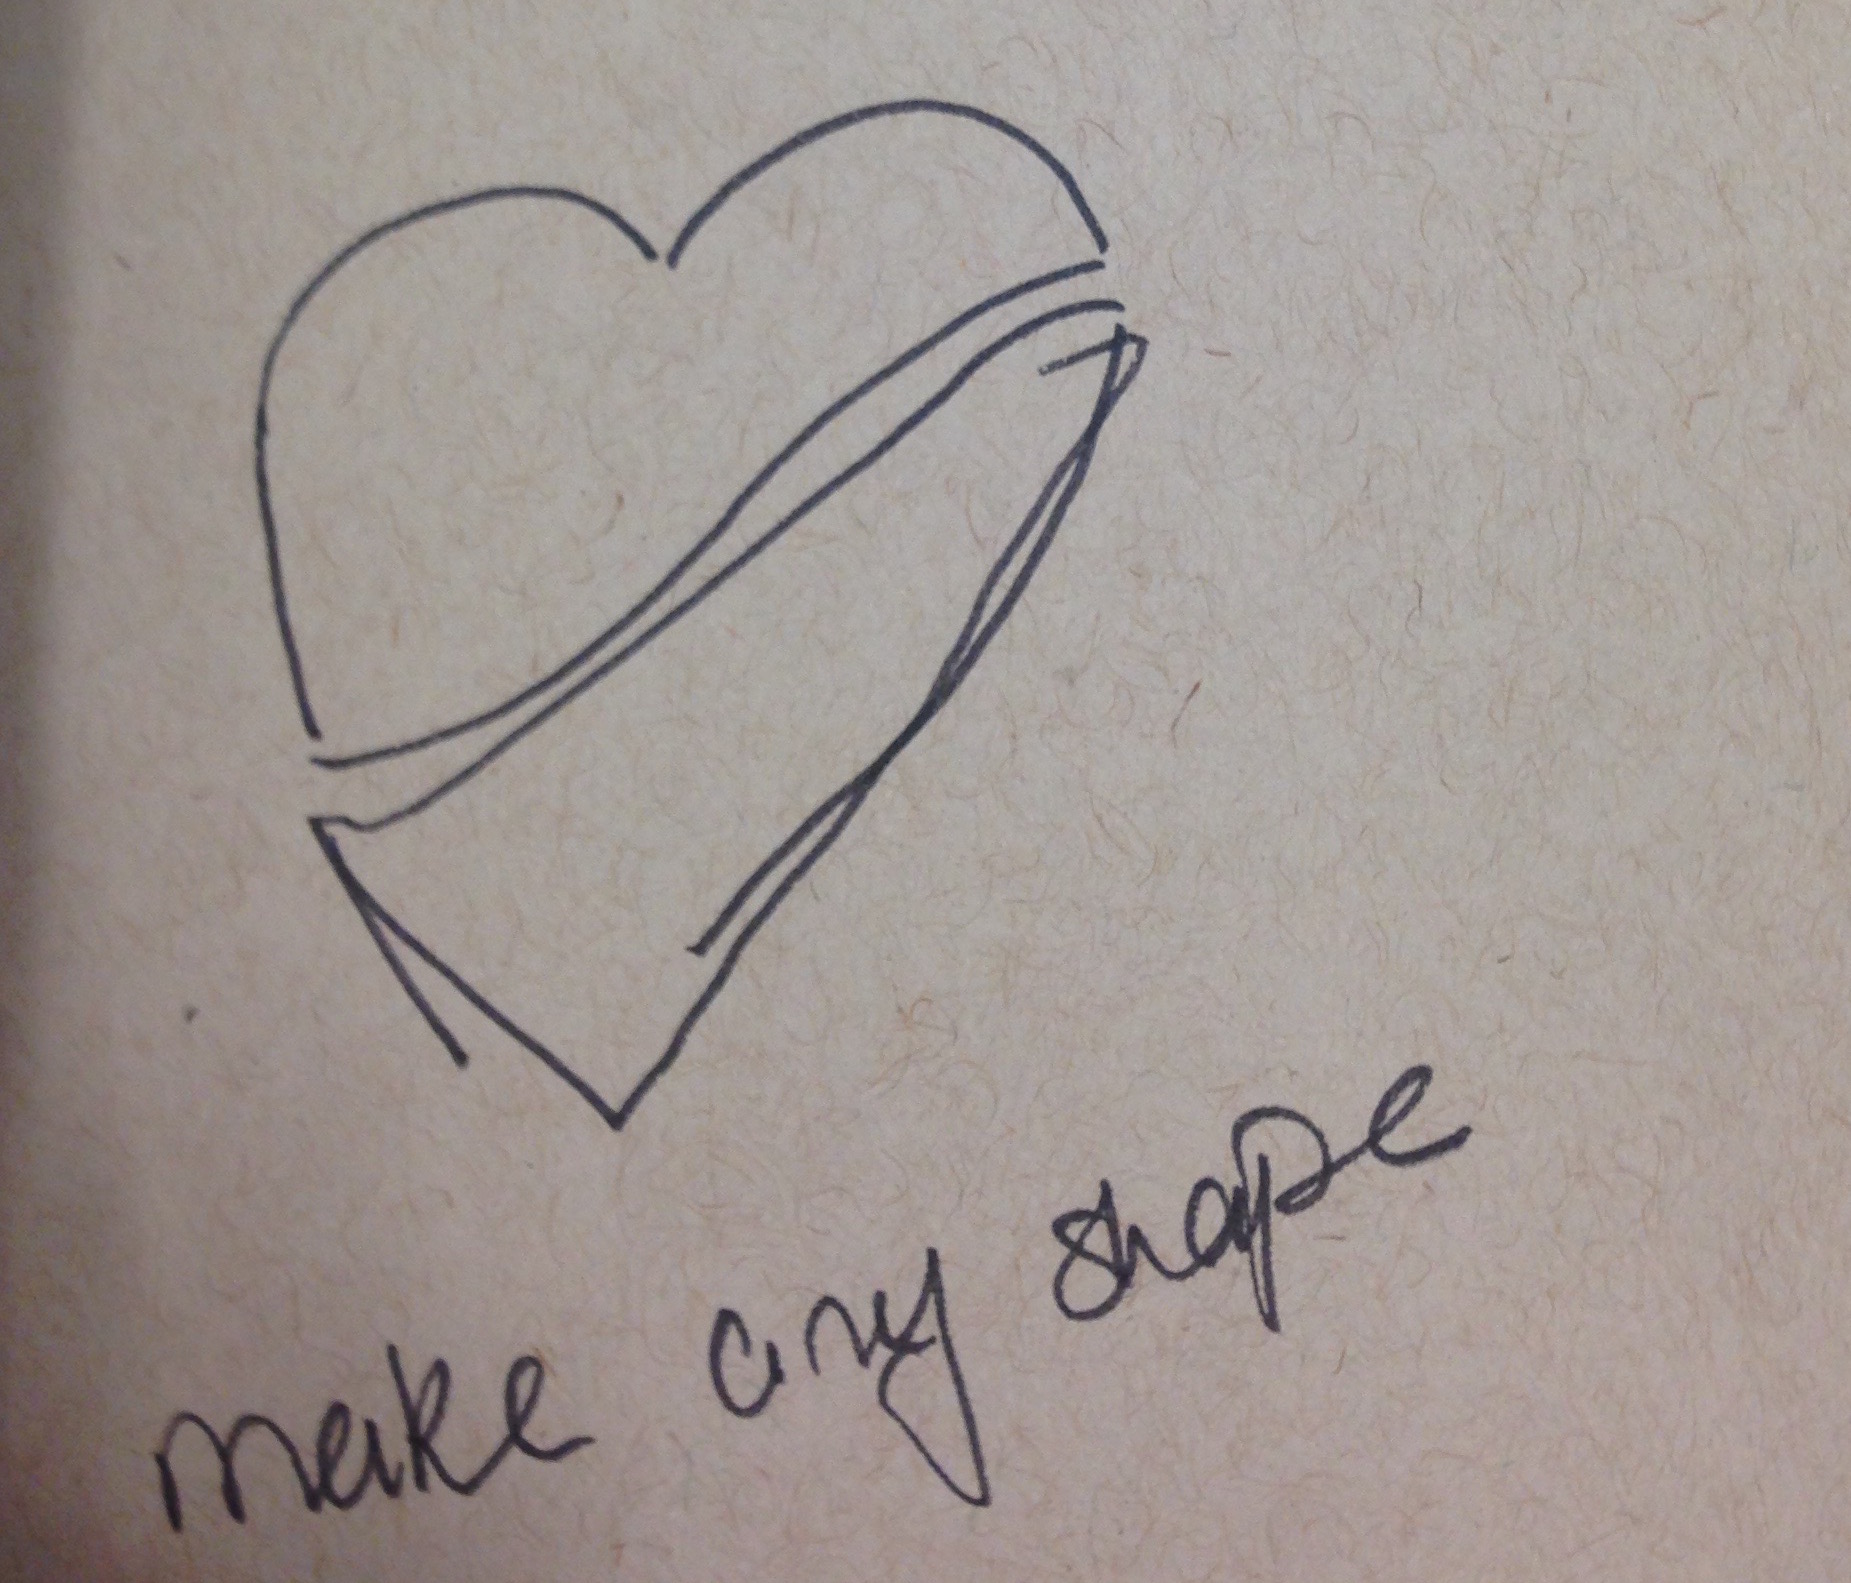 make any shape